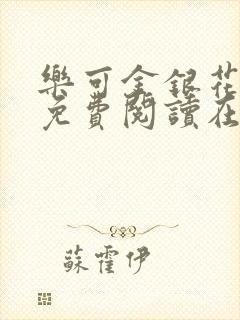 樂可金銀花
免費閱讀在
蘇霍伊